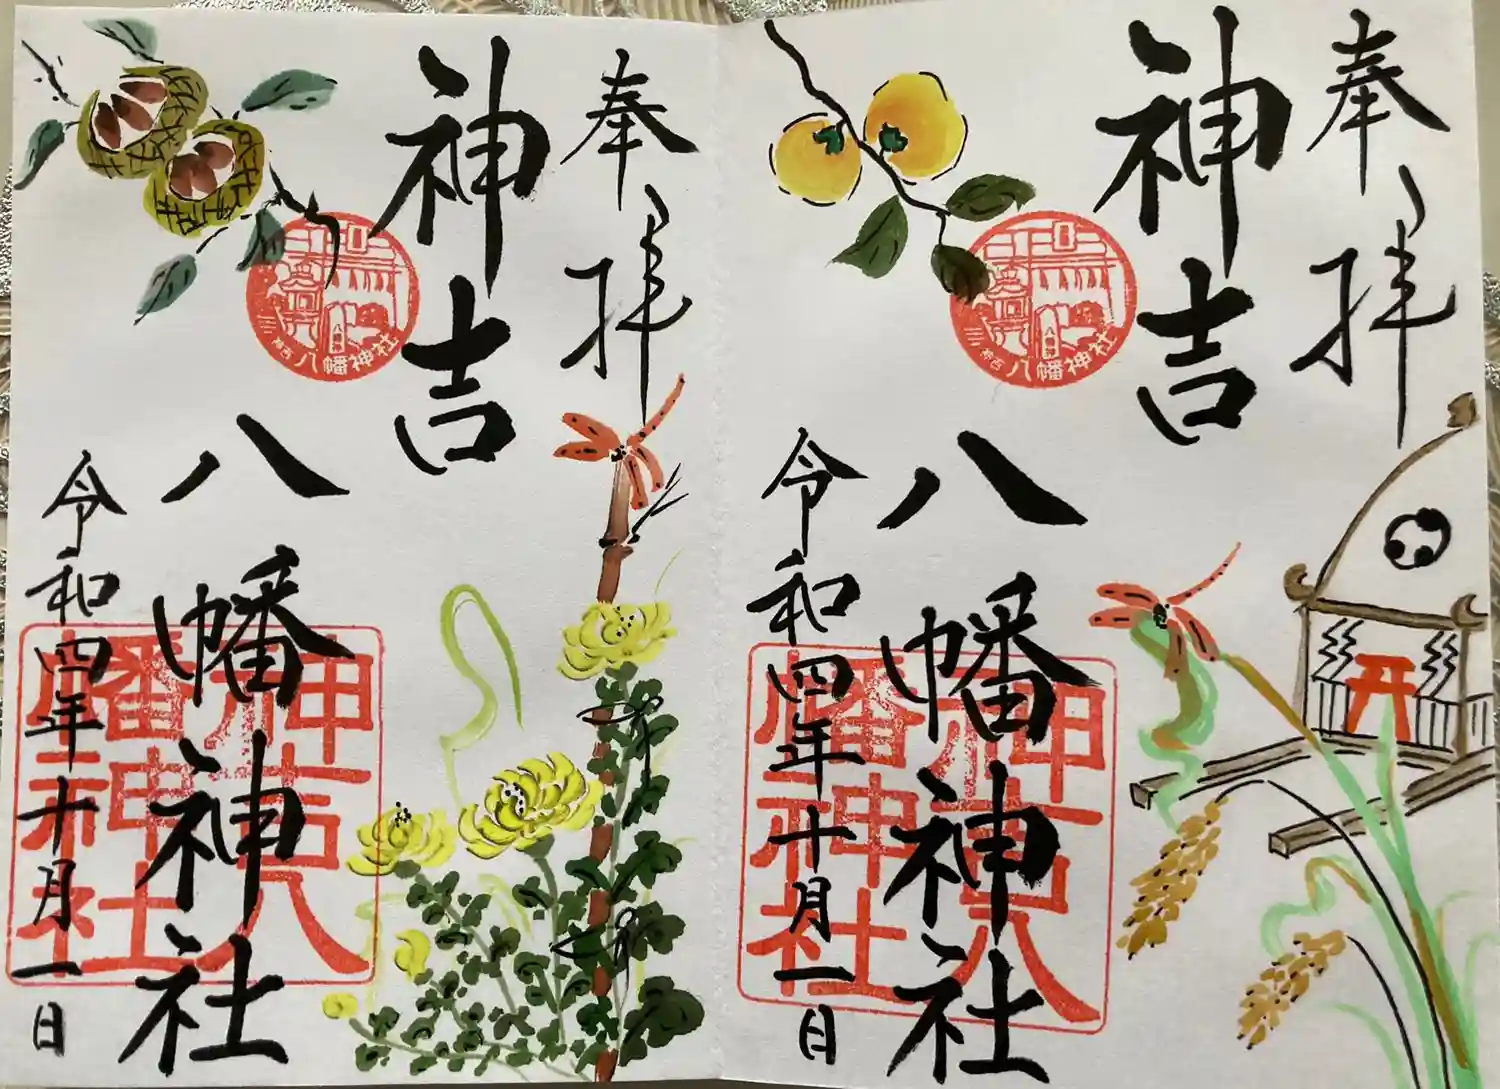 奉拝
神吉
八幡神社
令和四年十月一日
神吉八幡神社
八幡神社
奉拝
神吉
八幡神社
令和四年十月一日
神吉八幡神社
八幡神社